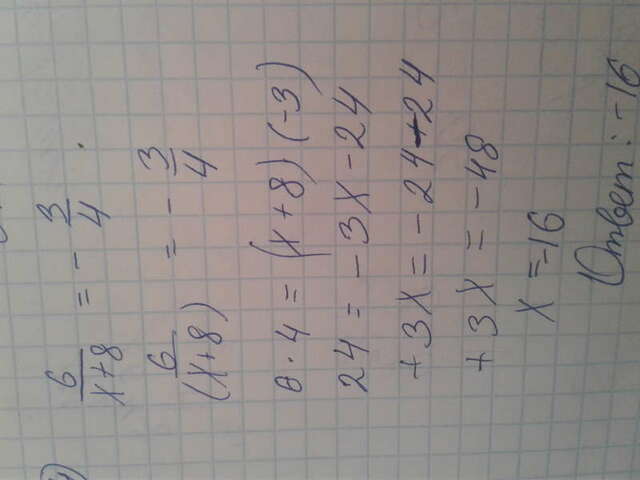 6/(x+8) = - 3/4 .
6/(x+8) = - 3/4
6 · 4 = (x+8)(-3)
24 = -3x-24
+3x = -24-24
+3x = -48
x = -16
Ответ: -16